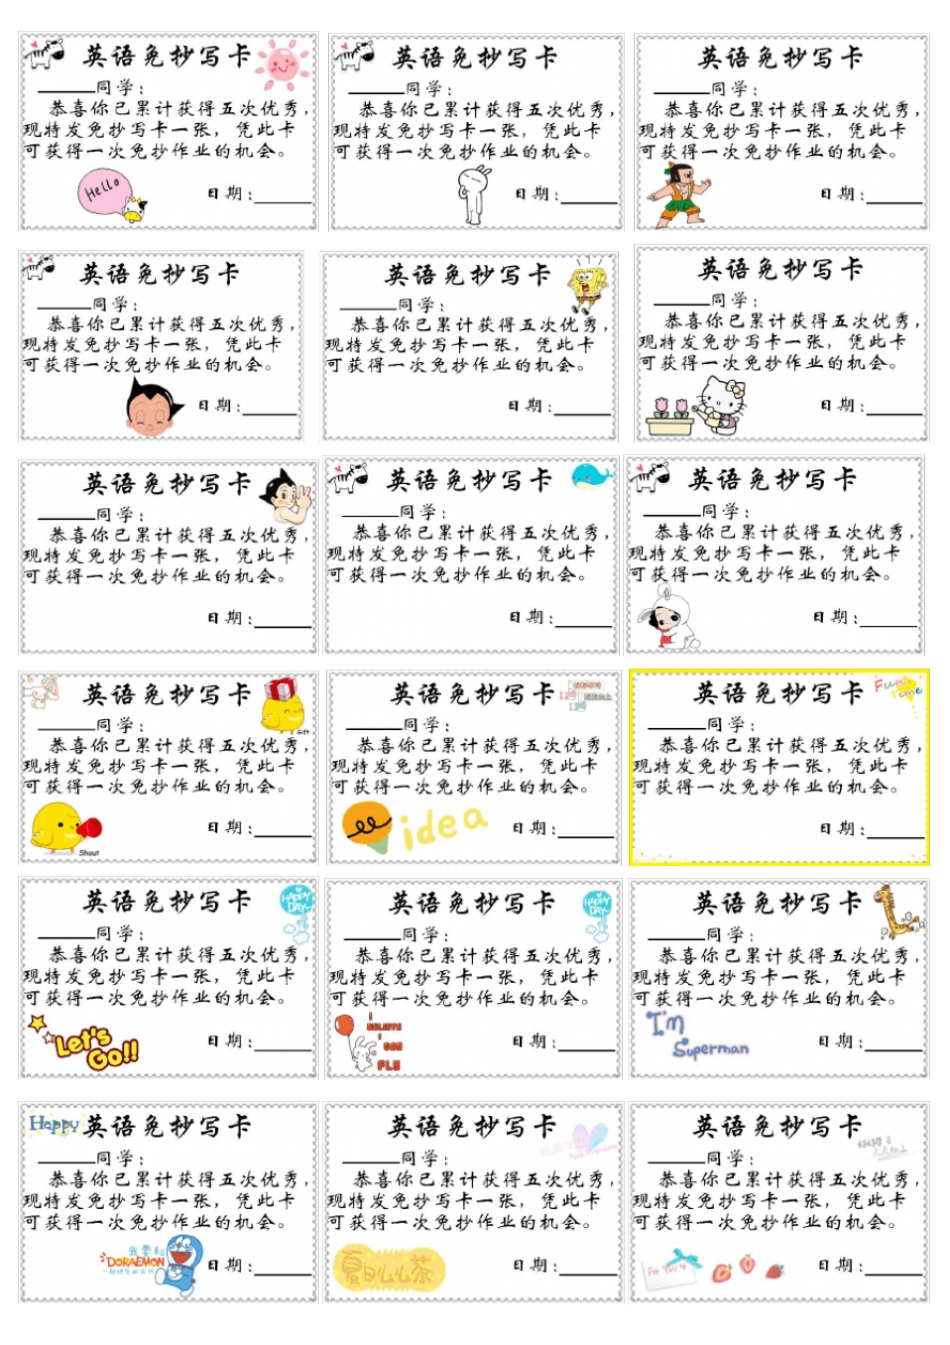 英语免抄写卡
______同学：
恭喜你已累计获得五次优秀，
现特发免抄写卡一张，凭此卡
可获得一次免抄作业的机会。
Hello
日期：______
英语免抄写卡
______同学：
恭喜你已累计获得五次优秀，
现特发免抄写卡一张，凭此卡
可获得一次免抄作业的机会。
日期：______
英语免抄写卡
______同学：
恭喜你已累计获得五次优秀，
现特发免抄写卡一张，凭此卡
可获得一次免抄作业的机会。
日期：______
英语免抄写卡
______同学：
恭喜你已累计获得五次优秀，
现特发免抄写卡一张，凭此卡
可获得一次免抄作业的机会。
日期：______
英语免抄写卡
______同学：
恭喜你已累计获得五次优秀，
现特发免抄写卡一张，凭此卡
可获得一次免抄作业的机会。
日期：______
英语免抄写卡
______同学：
恭喜你已累计获得五次优秀，
现特发免抄写卡一张，凭此卡
可获得一次免抄作业的机会。
日期：______
英语免抄写卡
______同学：
恭喜你已累计获得五次优秀，
现特发免抄写卡一张，凭此卡
可获得一次免抄作业的机会。
日期：______
英语免抄写卡
______同学：
恭喜你已累计获得五次优秀，
现特发免抄写卡一张，凭此卡
可获得一次免抄作业的机会。
日期：______
英语免抄写卡
______同学：
恭喜你已累计获得五次优秀，
现特发免抄写卡一张，凭此卡
可获得一次免抄作业的机会。
日期：______
英语免抄写卡
______同学：
Gift
恭喜你已累计获得五次优秀，
现特发免抄写卡一张，凭此卡
可获得一次免抄作业的机会。
日期：______
Shout
英语免抄写卡
______同学：
恭喜你已累计获得五次优秀，
现特发免抄写卡一张，凭此卡
可获得一次免抄作业的机会。
idea
日期：______
英语免抄写卡
Fun Time
______同学：
恭喜你已累计获得五次优秀，
现特发免抄写卡一张，凭此卡
可获得一次免抄作业的机会。
日期：______
英语免抄写卡
HAPPY
DAY
______同学：
恭喜你已累计获得五次优秀，
现特发免抄写卡一张，凭此卡
可获得一次免抄作业的机会。
Let's
Go!!
日期：______
英语免抄写卡
HAPPY
DAY
______同学：
恭喜你已累计获得五次优秀，
现特发免抄写卡一张，凭此卡
可获得一次免抄作业的机会。
I
BELIEVE
I
CAN
FLY
日期：______
英语免抄写卡
______同学：
恭喜你已累计获得五次优秀，
现特发免抄写卡一张，凭此卡
可获得一次免抄作业的机会。
I'm
Superman
日期：______
Happy
英语免抄写卡
______同学：
恭喜你已累计获得五次优秀，
现特发免抄写卡一张，凭此卡
可获得一次免抄作业的机会。
我要和
DORAEMON
日期：______
英语免抄写卡
______同学：
恭喜你已累计获得五次优秀，
现特发免抄写卡一张，凭此卡
可获得一次免抄作业的机会。
夏日么么茶
日期：______
英语免抄写卡
好好学习
天天向上
______同学：
恭喜你已累计获得五次优秀，
现特发免抄写卡一张，凭此卡
可获得一次免抄作业的机会。
For You
日期：______